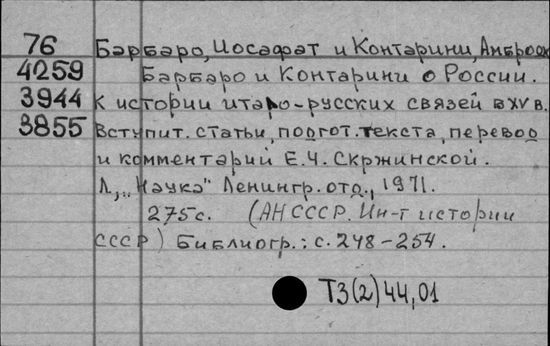 76 Барбаро, Иосафат и Контарини, Амбродж
4259 Барбаро и Контарини о России.
3944 К истории итало-русских связей в XV в.
3855 Вступит. статьи, подгот. текста, перевод
и комментарий Е.Ч. Скржинской.
Л., "Наука" Ленингр. отд., 1971.
275с. (АН СССР. Ин-т истории
СССР) Библиогр.: с. 248-254.
Т3(2)44,01